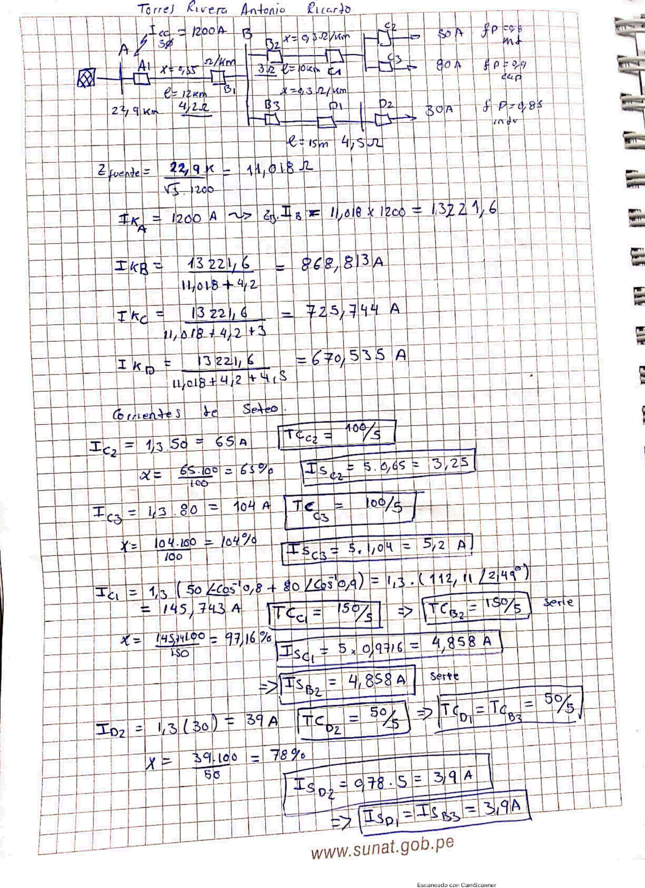 Torres Rivera Antonio Ricardo
Icc 3φ = 1200A
A
A1
x = 0,35 Ω/km
l = 12km
4,2Ω
22,9 km
B1
B
B2
x = 0,3 Ω/km
3Ω l = 10km
C1
C2
50A fP = 0,8 ind
C3
80A fP = 0,9 cap
x = 0.3 Ω/km
B3
D1
D2
30A fP = 0,85 indu
l = 15m 4,5Ω
Zfuente = 22,9 K / √3 . 1200 = 11,018 Ω
IKA = 1200 A ~> ZB. IB = 11,018 x 1200 = 13221,6
IKB = 13221,6 / 11,018 + 4,2 = 868,813 A
IKC = 13221,6 / 11,018 + 4,2 + 3 = 725,744 A
IKD = 13221,6 / 11,018 + 4,2 + 4,5 = 670,535 A
Corrientes de Seteo.
IC2 = 1,3 50 = 65 A TCC2 = 100/5
x = 65.100 / 100 = 65% ISC2 = 5.0,65 = 3,25
IC3 = 1,3 . 80 = 104 A TCC3 = 100/5
x = 104.100 / 100 = 104% ISC3 = 5. 1,04 = 5,2 A
IC1 = 1,3 (50 ∠cos⁻¹0,8 + 80 ∠cos⁻¹0,9) = 1,3 . (112,11 ∠2,49°)
= 145,743 A TCC1 = 150/5 => TCB2 = 150/5 serie
x = 145,74.100 / 150 = 97,16% ISC1 = 5 x 0,9716 = 4,858 A
=> ISB2 = 4,858 A serie
ID2 = 1,3 (30) = 39 A TCD2 = 50/5 => TCD1 = TCB3 = 50/5
x = 39.100 / 50 = 78%
ISD2 = 0,78 . 5 = 3,9 A
=> ISD1 = ISB3 = 3,9 A
www.sunat.gob.pe
Escaneado con CamScanner